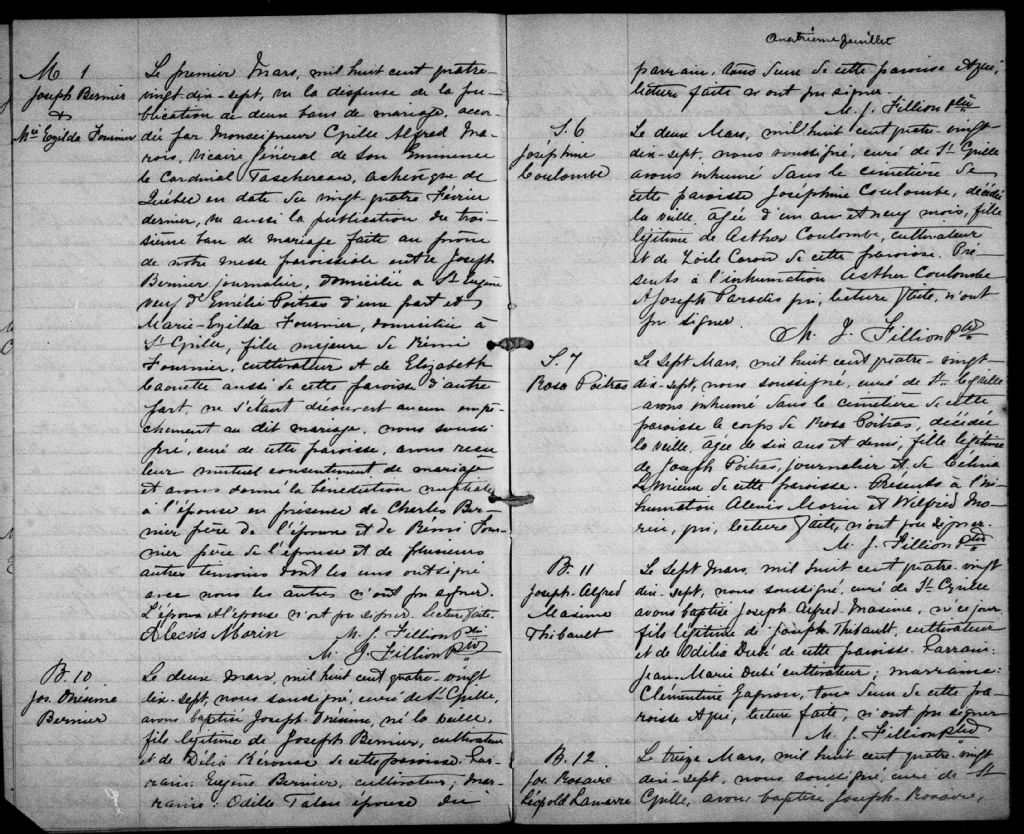 M 1
Joseph Bernier
&
Mie Ezilda Fournier
Le premier Mars, mil huit cent quatre-
vingt dix-sept, vu la dispense de la pu-
blication de deux bans de mariage, accor-
dée par Monseigneur Cyrille Alfred Ma-
rois, Vicaire Général de Son Eminence
le Cardinal Taschereau, Archevêque de
Québec en date du vingt quatre Février
dernier, vu aussi la publication du troi-
sième ban de mariage faite au prône
de notre messe paroissiale entre Joseph
Bernier journalier, domicilié à St Eugène
veuf d'Emilie Poitras d'une part et
Marie-Ezilda Fournier, domiciliée à
St Cyrille, fille mejeure de Rémi
Fournier, cultivateur et de Elizabeth
Caouette aussi de cette paroisse d'autre
part, ne s'étant découvert aucun empê-
chement au dit mariage, nous soussi-
gné, curé de cette paroisse, avons reçu
leur mutuel consentement de mariage
et avons donné la bénédiction nuptiale
à l'épouse en présence de Charles Ber-
nier père de l'époux et de Rémi Four-
nier père de l'épouse et de plusieurs
autres temoins dont les uns ont signé
avec nous les autres n'ont pu signer.
L'époux et l'épouse n'ont pu signer. Lecture faite.
Alecsis Morin M. J. Fillion Ptre
M. J. Fillion Ptre
B. 10
Jos. Onésime
Bernier
Le deux Mars, mil huit cent quatre-vingt
dix-sept, nous soussigné, curé de St Cyrille,
avons baptisé Joseph-Onésime, né la veille,
fils légitime de Joseph Bernier, cultivateur
et de Délia Kérouac de cette paroisse. Par-
rain: Eugène Bernier, cultivateur; mar-
raine: Odille Talon épouse du
Quatrième feuillet
parrain, tous deux de cette paroisse et qui,
lecture faite n'ont pu signer.
M. J. Fillion Ptre
S. 6
Joséphine
Coulombe
Le deux Mars, mil huit cent quatre-vingt-
dix-sept, nous soussigné, curé de St Cyrille
avons inhumé dans le cimetière de
cette paroisse Joséphine Coulombe, décédée
la veille, âgée d'un an et neuf mois, fille
légitime de Asther Coulombe, cultivateur
et de Zoïle Caron de cette paroisse. Pré-
sents à l'inhumation Asther Coulombe
et Joseph Paradis qui, lecture faite, n'ont
pu signer.
M. J. Fillion Ptre
S. 7
Rosa Poitras
Le sept Mars, mil huit cent quatre-vingt-
dix-sept, nous soussigné, curé de St Cyrille
avons inhumé dans le cimetière de cette
paroisse le corps de Rosa Poitras, décédée
la veille, âgée de six ans et demi, fille légitime
de Joseph Poitras, journalier et de Célina
Lemieux de cette paroisse. Présents à l'in-
humation Alexis Morin et Wilfrid Mo-
rin, qui, lecture faite, n'ont pu signer.
M. J. Fillion Ptre
B. 11
Joseph-Alfred
Maxime
Thibault
Le sept Mars, mil huit cent quatre-vingt
dix-sept, nous soussigné, curé de St Cyrille
avons baptisé Joseph Alfred-Maxime, né ce jour,
fils légitime de Joseph Thibault, cultivateur
et de Odélia Dubé de cette paroisse. Parrain:
Jean-Marie Dubé cultivateur; marraine:
Clémentine Gagnon, tous deux de cette pa-
roisse et qui, lecture faite, n'ont pu signer
M. J. Fillion Ptre
B. 12
Jos. Rosaire
Léopold Lamarre
Le treize Mars, mil huit cent quatre-vingt
dix-sept, nous soussigné, curé de St
Cyrille, avons baptisé Joseph-Rosaire,